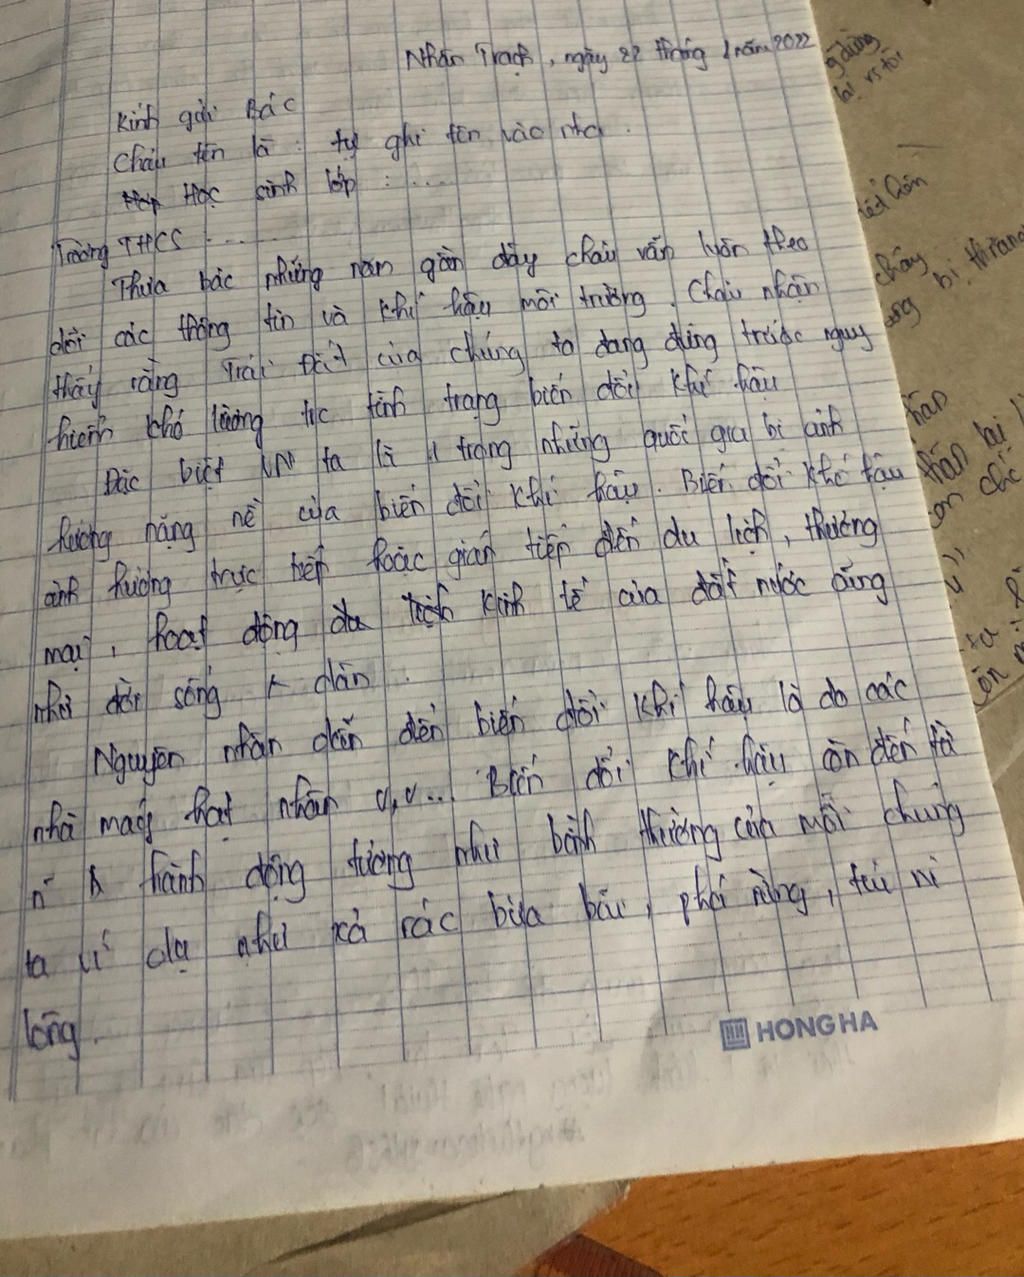 Nhân Trạch, ngày 22 tháng 1 năm 2022
Kính gửi Bác
Cháu tên là : tự ghi tên vào nha.
Học sinh lớp : ....
Trường THCS ....
Thưa bác những năm gần đây cháu vẫn luôn theo
dõi các thông tin và khí hậu môi trường. Cháu nhận
thấy rằng Trái Đất của chúng ta đang đứng trước nguy
hiểm khó lường tức tình trạng biến đổi khí hậu
Đặc biệt VN ta là 1 trong những quối gia bị ảnh
hưởng nặng nề của biến đổi khí hậu. Biến đổi khó hậu
ảnh hưởng trực tiếp hoặc gián tiếp đến du lịch, thương
mại, hoạt động kinh tế của đất nước cũng
như đời sống dân.
Nguyên nhân dẫn đến biến đổi khí hậu là do các
nhà máy hạt nhân v,v... Biến đổi khí hậu còn đến từ
hành động tưởng như bình thường của mỗi chúng
ta ví dụ như xả rác bừa bãi, phá rừng, túi ni
lông.
HONG HA
g dùng
lại
cháy
bị
hân
lại